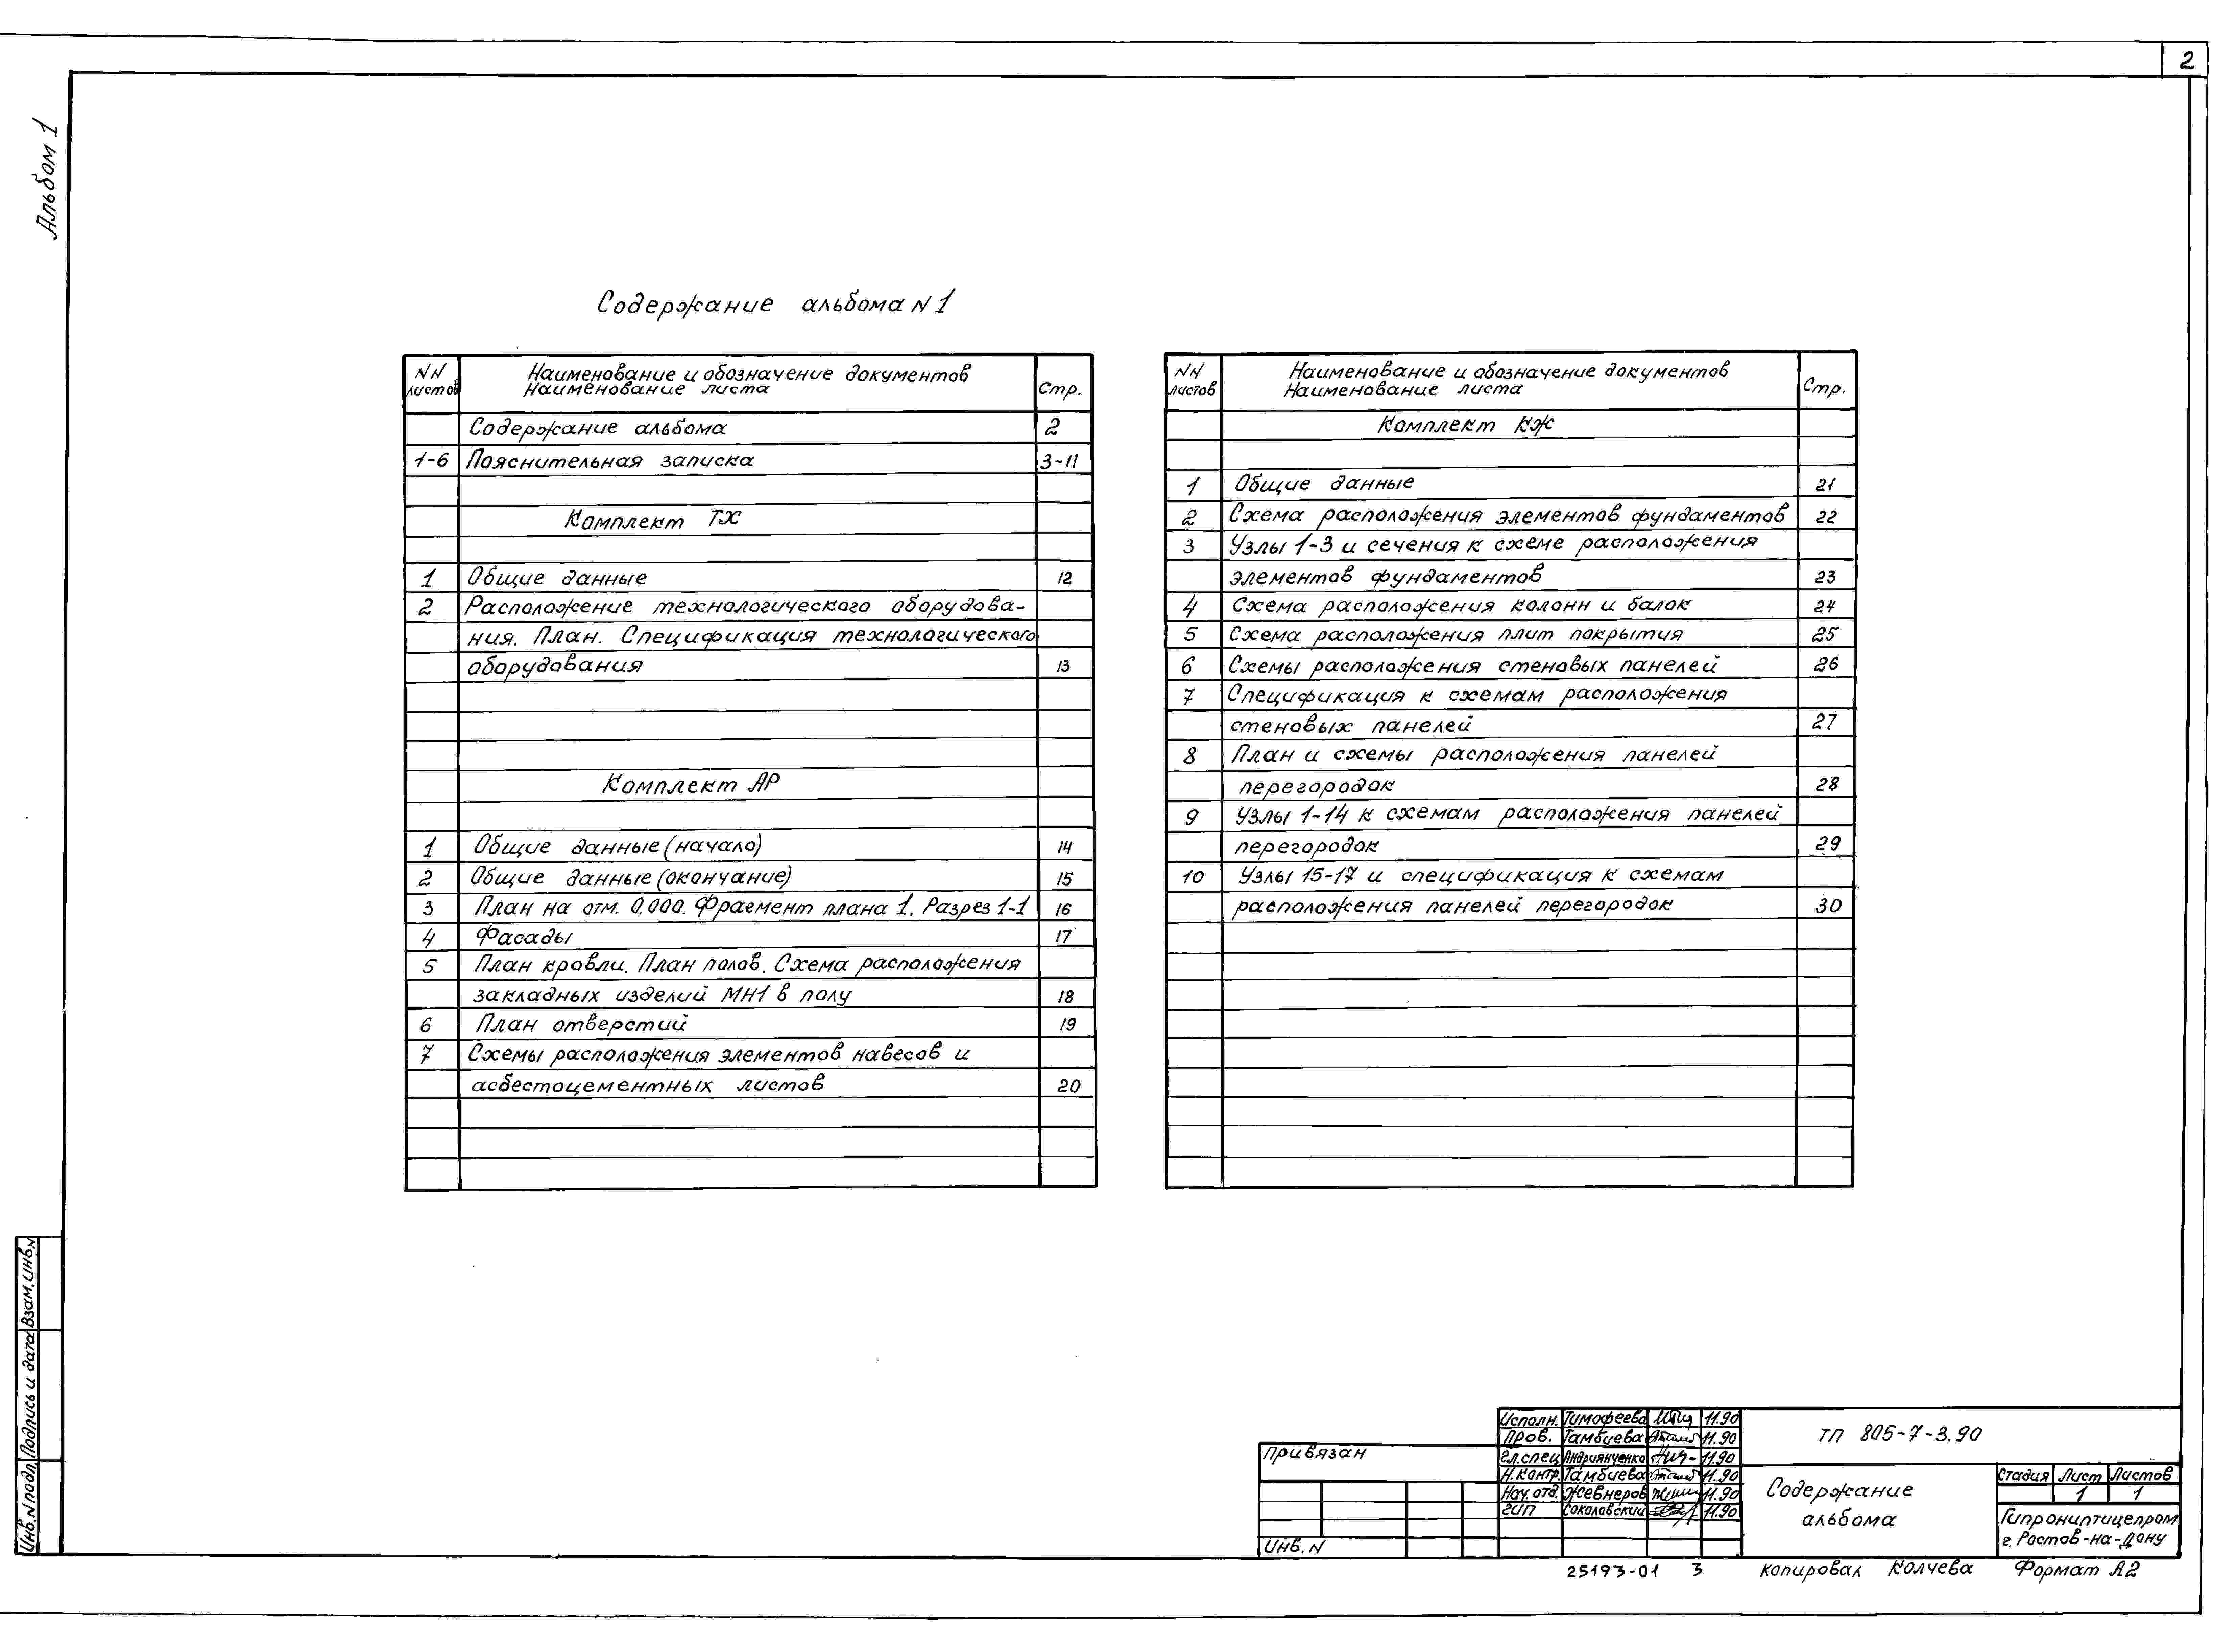 2
Альбом 1
Содержание альбома N 1
NN листов Наименование и обозначение документов Наименование листа Стр.
Содержание альбома 2
1-6 Пояснительная записка 3-11
Комплект ТХ
1 Общие данные 12
2 Расположение технологического оборудова-
ния. План. Спецификация технологического
оборудования 13
Комплект АР
1 Общие данные (начало) 14
2 Общие данные (окончание) 15
3 План на отм. 0.000. Фрагмент плана 1. Разрез 1-1 16
4 Фасады 17
5 План кровли. План полов. Схема расположения
закладных изделий МН1 в полу 18
6 План отверстий 19
7 Схемы расположения элементов навесов и
асбестоцементных листов 20
NN листов Наименование и обозначение документов Наименование листа Стр.
Комплект КЖ
1 Общие данные 21
2 Схема расположения элементов фундаментов 22
3 Узлы 1-3 и сечения к схеме расположения
элементов фундаментов 23
4 Схема расположения колонн и балок 24
5 Схема расположения плит покрытия 25
6 Схемы расположения стеновых панелей 26
7 Спецификация к схемам расположения
стеновых панелей 27
8 План и схемы расположения панелей
перегородок 28
9 Узлы 1-14 к схемам расположения панелей
перегородок 29
10 Узлы 15-17 и спецификация к схемам
расположения панелей перегородок 30
Инв. N подл. Подпись и дата Взам. инв. N
Привязан
Инв. N
Исполн. Тимофеева 11.90
Пров. Тамбиева 11.90
Гл. спец Андриянченко 11.90
Н. контр. Тамбиева 11.90
Нач. отд. Жевнеров 11.90
ГИП Соколовский 11.90
ТП 805-7-3.90
Содержание
альбома
Стадия Лист Листов
1 1
Гипрониптицепром
г. Ростов-на-Дону
25193-01 3 копировал Колчева Формат А2